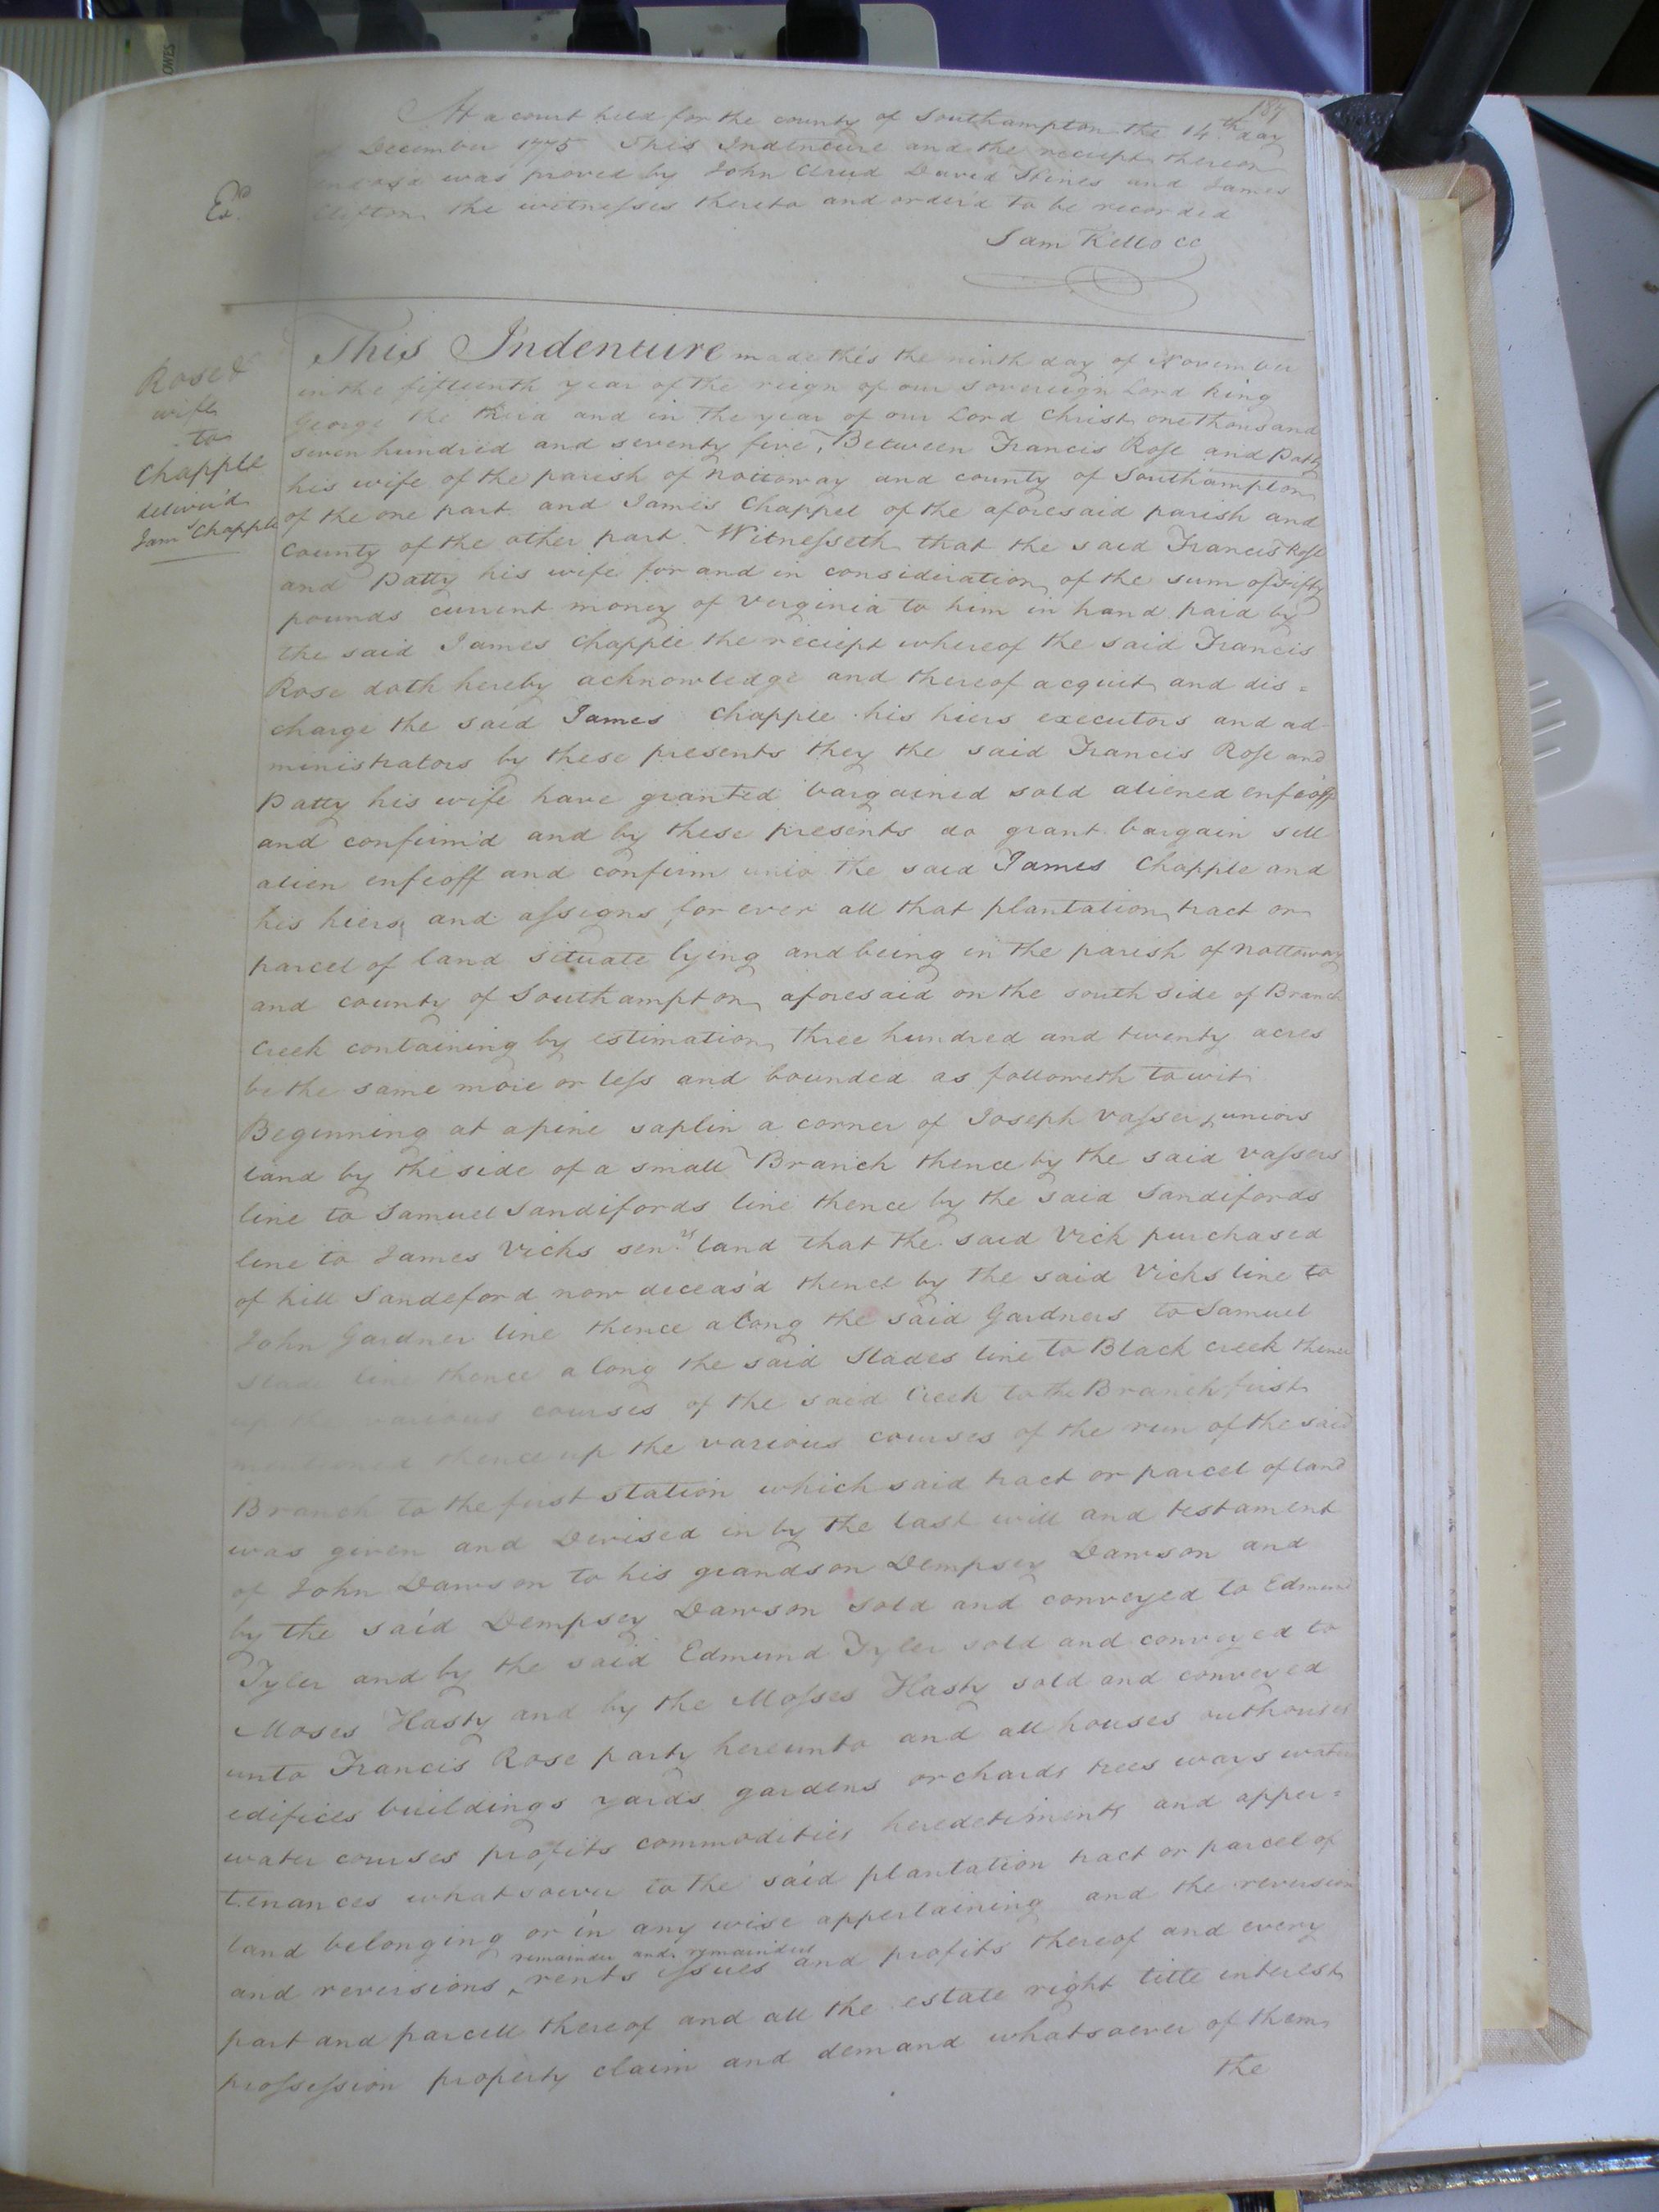 187
At a court held for the county of Southampton the 14th day
of December 1775 This Indenture and the reciept thereon
endos'd was proved by John Crud David Stines and James
Clifton the witnesses thereto and order'd to be recorded
Exd.
Sam Kello CC
This Indenture made this the ninth day of November
in the fifteenth year of the reign of our sovereign Lord king
George the third and in the year of our Lord Christ one thousand
seven hundred and seventy five, Between Francis Rose and Patty
his wife of the parish of nottoway and county of Southampton
of the one part and James Chappel of the aforesaid parish and
County of the other part Witnesseth that the said Francis Rose
and Patty his wife for and in consideration of the sum of fifty
pounds current money of Verginia to him in hand paid by
the said James Chapple the reciept whereof the said Francis
Rose doth hereby acknowledge and thereof acquit and dis=
charge the said James Chapple his hiers executors and ad-
ministrators by these presents they the said Francis Rose and
Patty his wife have granted bargained sold aliened enfeoff
and confirm'd and by these presents do grant bargain sell
alien enfeoff and confirm unto the said James Chapple and
his hiers and assigns for ever all that plantation tract or
parcel of land situate lying and being in the parish of nottoway
and county of Southampton aforesaid on the south side of Branch
Creek containing by estimation three hundred and twenty acres
be the same more or less and bounded as followeth to wit
Beginning at a pine saplin a corner of Joseph Vasser juniors
land by the side of a small Branch thence by the said vassers
line to Samuel Sandifords line thence by the said Sandifords
line to James Vicks senrs land that the said Vick purchased
of hill Sandeford now deceas'd thence by the said Vicks line to
John Gardner line thence along the said Gardners to Samuel
Slade line thence along the said Slades line to Black creek thence
up the various courses of the said Creek to the Branch first
mentioned thence up the various courses of the run of the said
Branch to the first station which said tract or parcel of land
was given and Devised in by the last will and testament
of John Dawson to his grandson Dempsey Dawson and
by the said Dempsey Dawson sold and conveyed to Edmund
Tyler and by the said Edmund Tyler sold and conveyed to
Moses Hasty and by the Mosses Hasty sold and conveyed
unto Francis Rose party hereunto and all houses outhouses
edifices buildings yards gardens orchards trees ways water
water courses profits commodities heredetiments and apper=
tenances whatsoever to the said plantation tract or parcel of
land belonging or in any wise appertaining and the reversion
and reversions remainder and remainders rents issues and profits thereof and every
part and parcell thereof and all the estate right title interest
prossession property claim and demand whatsoever of them
the
Rose &
wife
to
Chapple
deliver'd
Jams Chapple